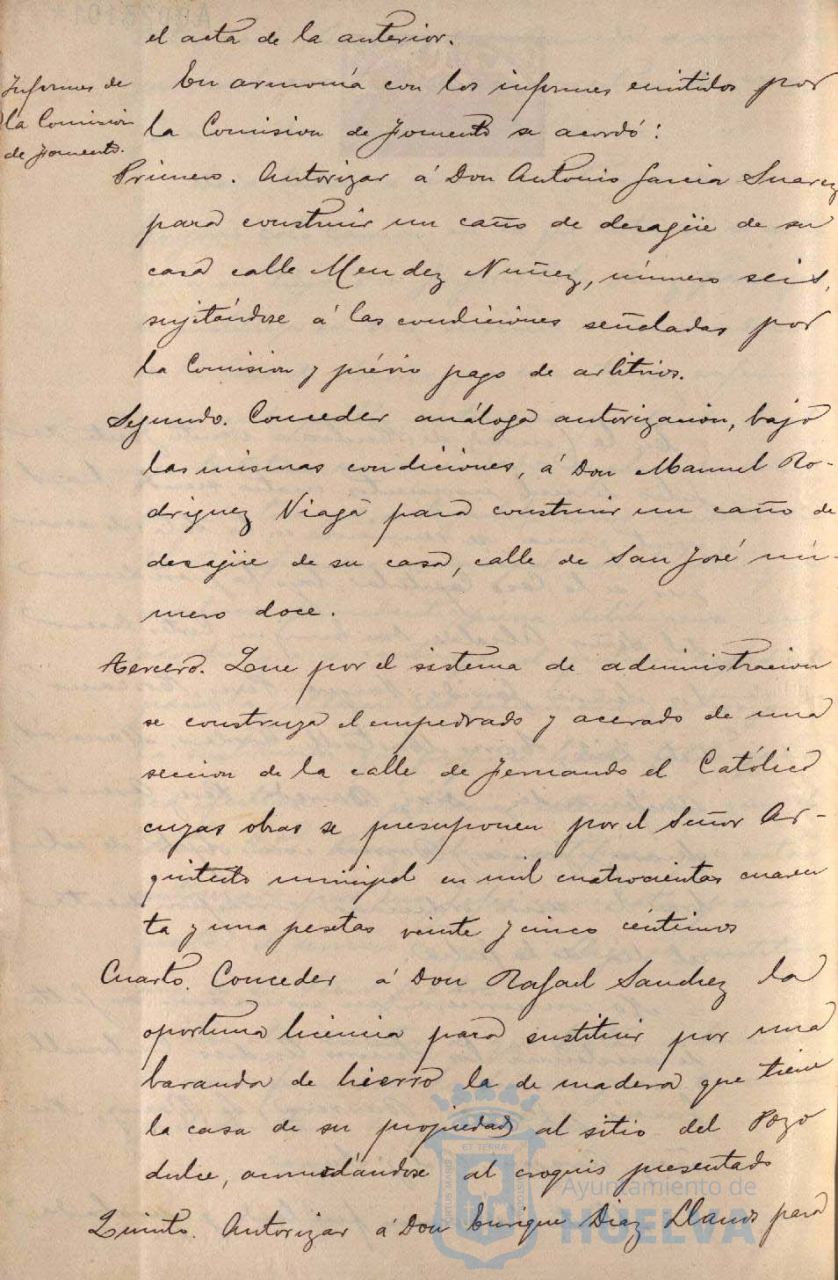 el acta de la anterior.
Informes de
la Comision
de fomento.
En armonía con los informes emitidos por
la Comision de Fomento se acordó:
Primero. Autorizar á Don Antonio Garcia Suarez
para construir un caño de desagüe de su
casa calle Mendez Nuñez, número seis,
sujetándose á las condiciones señaladas por
la Comision y prévio pago de arbitrios.
Segundo. Conceder análoga autorización, bajo
las mismas condiciones, á Don Manuel Ro-
driguez Viaga para construir un caño de
desagüe de su casa, calle de San José nú-
mero doce.
Tercero. Que por el sistema de administracion
se construya el empedrado y acerado de una
seccion de la calle de Fernando el Católico
cuyas obras se presuponen por el Señor Ar-
quitecto municipal en mil cuatrocientas cuaren
ta y una pesetas veinte y cinco céntimos
Cuarto. Conceder á Don Rafael Sanchez la
oportuna licencia para sustituir por una
baranda de hierro la de madera que tiene
la casa de su propiedad al sitio del Pozo
dulce, acomodándose al croquis presentado
Quinto. Autorizar á Don Enrique Diaz Llanos para
Ayuntamiento de
HUELVA